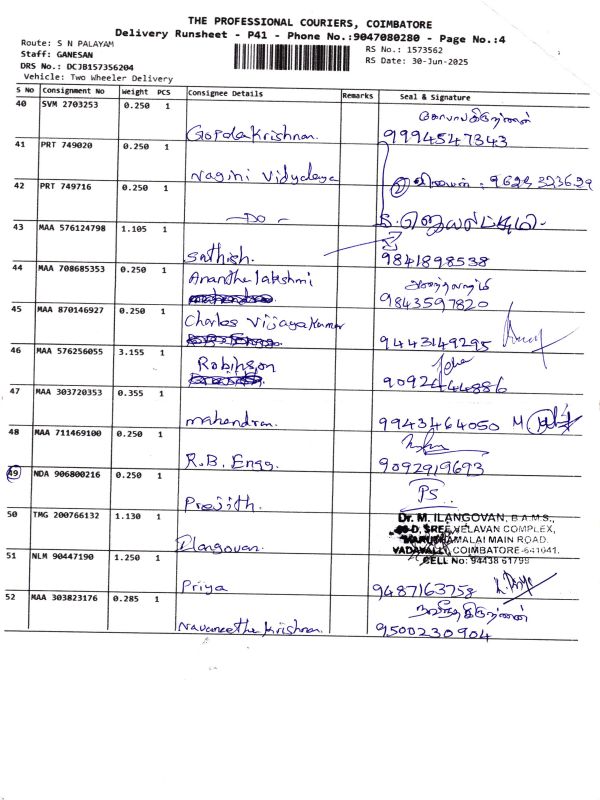 THE PROFESSIONAL COURIERS, COIMBATORE
Delivery Runsheet - P41 - Phone No.:9047080280 - Page No.:4
Route: S N PALAYAM
Staff: GANESAN
DRS No.: DCJB157356204
Vehicle: Two Wheeler Delivery
RS No.: 1573562
RS Date: 30-Jun-2025
S No Consignment No Weight PCS Consignee Details Remarks Seal & Signature
40 SVM 2703253 0.250 1
Gopalakrishnan. 9994547343
41 PRT 749020 0.250 1
Nagini Vidyalaya
42 PRT 749716 0.250 1
-DO-
43 MAA 576124798 1.105 1
Sathish. 9841898538
44 MAA 708685353 0.250 1
Ananthalakshmi
9843597820
45 MAA 870146927 0.250 1
Charles Vijayakumar
9443149295
46 MAA 576256055 3.155 1
Robinson
9092444886
47 MAA 303720353 0.355 1
mahendran. 9943464050
48 MAA 711469100 0.250 1
R.B. Engg. 9092919693
49 NDA 906800216 0.250 1
Prejith. PS..
50 TMG 200766132 1.130 1
Ilangovan.
Dr. M. ILANGOVAN, B.A.M.S.,
SREE VELAVAN COMPLEX,
MARUTHAMALAI MAIN ROAD,
VADAVALLI, COIMBATORE-641041.
CELL No: 94438 61799
51 NLM 90447190 1.250 1
Priya 9487163758
52 MAA 303823176 0.285 1
Navaneetha Krishnan. 9500230904